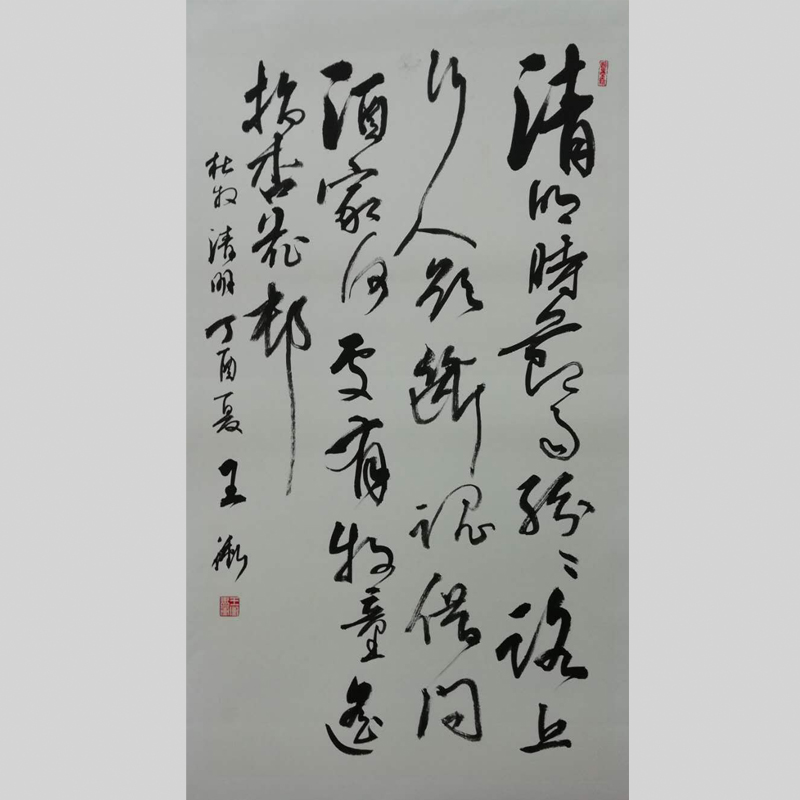 清明時節雨紛〻路上
行人欲斷魂借問
酒家何處有牧童遙
指杏花邨
杜牧清明丁酉夏王